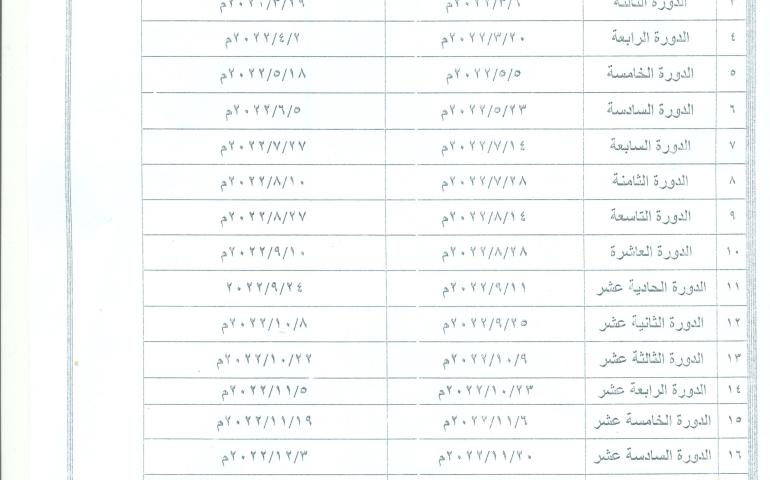 ٣ الدورة الثالثة ٢٠٢٢/٣/٦م ٢٠٢٢/٣/١٩م
٤ الدورة الرابعة ٢٠٢٢/٣/٢٠م ٢٠٢٢/٤/٢م
٥ الدورة الخامسة ٢٠٢٢/٥/٥م ٢٠٢٢/٥/١٨م
٦ الدورة السادسة ٢٠٢٢/٥/٢٣م ٢٠٢٢/٦/٥م
٧ الدورة السابعة ٢٠٢٢/٧/١٤م ٢٠٢٢/٧/٢٧م
٨ الدورة الثامنة ٢٠٢٢/٧/٢٨م ٢٠٢٢/٨/١٠م
٩ الدورة التاسعة ٢٠٢٢/٨/١٤م ٢٠٢٢/٨/٢٧م
١٠ الدورة العاشرة ٢٠٢٢/٨/٢٨م ٢٠٢٢/٩/١٠م
١١ الدورة الحادية عشر ٢٠٢٢/٩/١١م ٢٠٢٢/٩/٢٤
١٢ الدورة الثانية عشر ٢٠٢٢/٩/٢٥م ٢٠٢٢/١٠/٨م
١٣ الدورة الثالثة عشر ٢٠٢٢/١٠/٩م ٢٠٢٢/١٠/٢٢م
١٤ الدورة الرابعة عشر ٢٠٢٢/١٠/٢٣م ٢٠٢٢/١١/٥م
١٥ الدورة الخامسة عشر ٢٠٢٢/١١/٦م ٢٠٢٢/١١/١٩م
١٦ الدورة السادسة عشر ٢٠٢٢/١١/٢٠م ٢٠٢٢/١٢/٣م